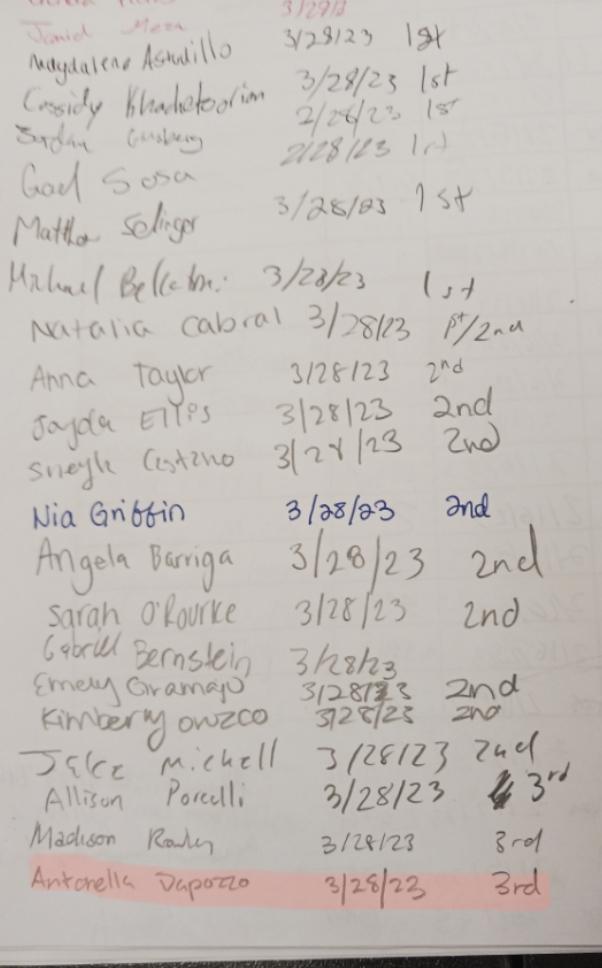 3/29/23
Jamid Meza
Magdalena Astudillo 3/28/23 1st
Cassidy Khachetoorian 3/28/23 1st
Jordan 2/28/23 1st
Gael Sosa 2/28/23 1st
Matthew Selinger 3/28/23 1st
Michael 3/28/23 1st
Natalia Cabral 3/28/23 1st/2nd
Anna Taylor 3/28/23 2nd
Jayda Ellis 3/28/23 2nd
3/28/23 2nd
Nia Griffin 3/28/23 2nd
Angela Barriga 3/28/23 2nd
Sarah O'Rourke 3/28/23 2nd
Gabriel Bernstein 3/28/23
Emely Gramajo 3/28/23 2nd
Kimberly Orozco 3/28/23 2nd
Jake Michell 3/28/23 2nd
Allison Porcelli 3/28/23 3rd
Madison 3/28/23 3rd
Antonella Dapozzo 3/28/23 3rd